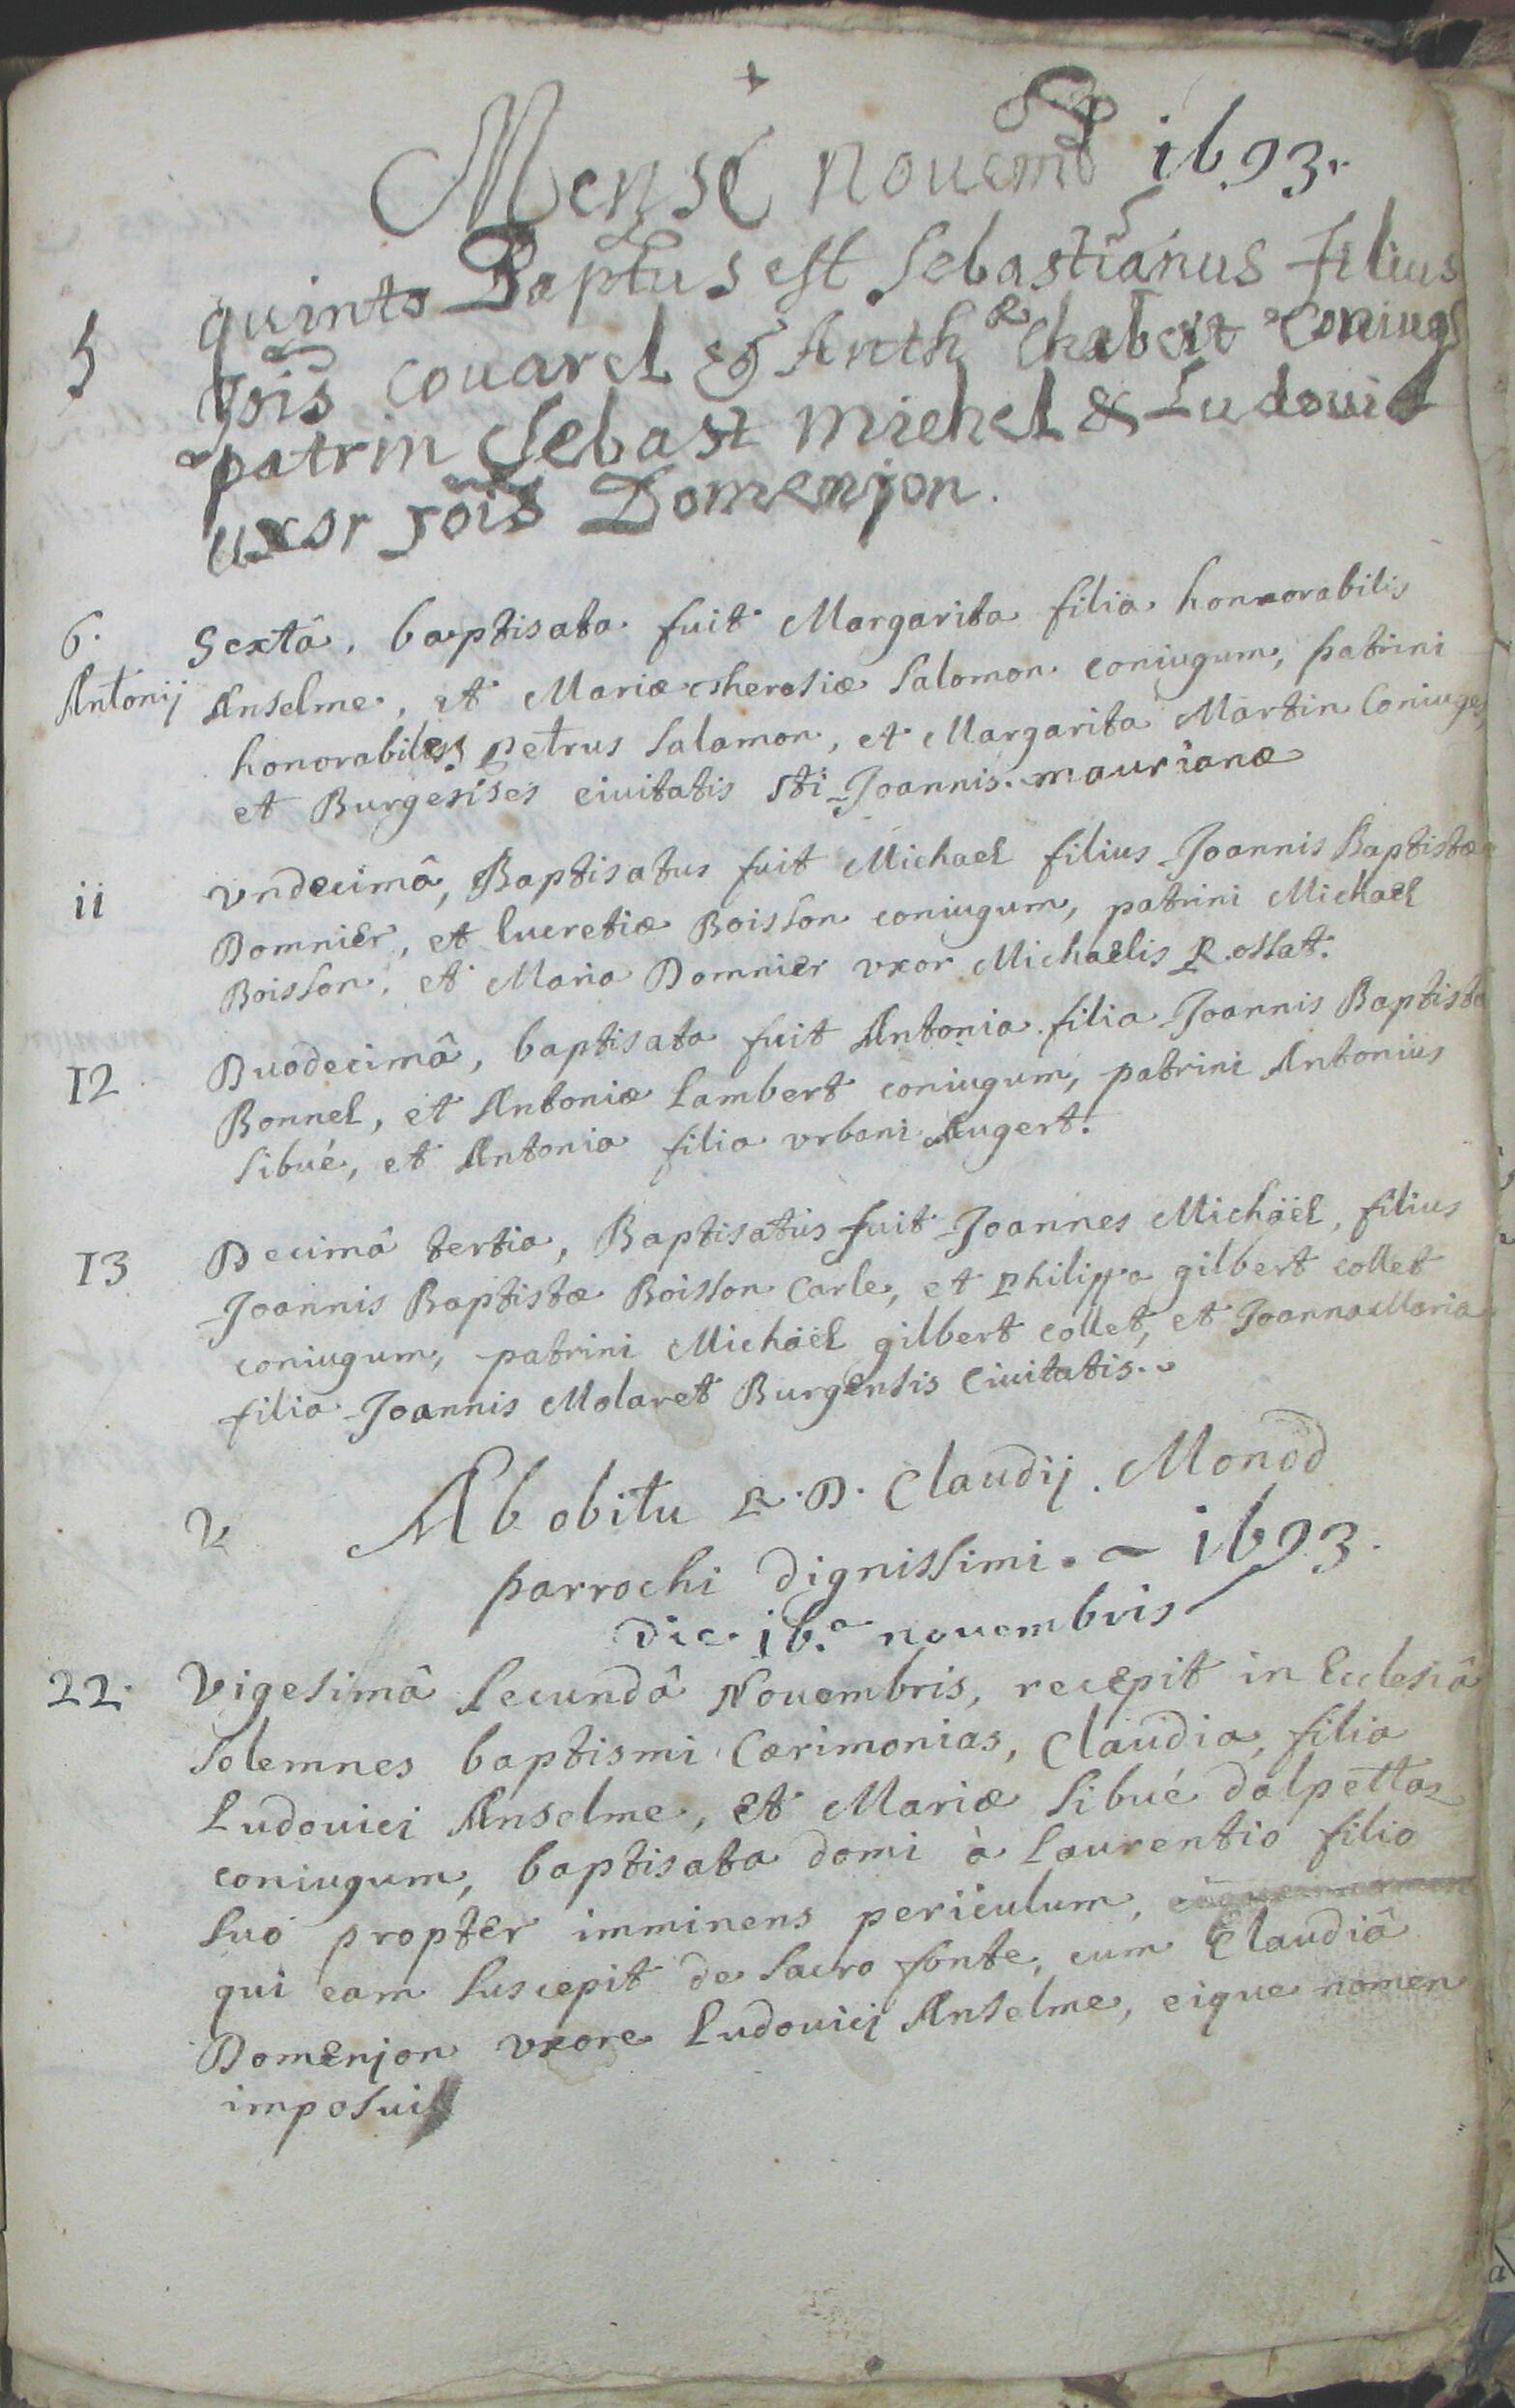 +
Mense nouemb 1693.
5 quinto Baptus est Sebastianus filius
Jois couarel & Anth Chabert coniugs
patrin Sebast michel & Ludouic
uxor Jois Domenjon.
6. Sextâ, baptisata fuit Margarita filia honnorabilis
Antonij Anselme, et Mariæ theresiæ Salomon coniugum, patrini
honorabiles Petrus Salamon, et Margarita Martin Coniuges,
et Burgesises ciuitatis Sti Joannis maurianæ
ii vndecimâ, Baptisatus fuit Michael filius Joannis Baptistæ
Domnier, et lucretiæ Boisson coniugum, patrini Michael
Boisson, et Maria Domnier vxor Michaelis Rossat.
12 Duodecimâ, baptisata fuit Antonia filia Joannis Baptistæ
Bonnel, et Antoniæ Lambert coniugum, patrini Antonius
Sibué, et Antonia filia vrbani Augert.
13 Decimâ tertia, Baptisatus fuit Joannes Michaël, filius
Joannis Baptistæ Boisson Carle, et Philippa gilbert collet
coniugum, patrini Michaël gilbert collet, et Joanna Maria
filia Joannis Molaret Burgensis Ciuitatis.
Ab obitu R. D. Claudij Monod
parrochi dignissimi. ~ 1693.
die 16.a nouembris
22. Vigesimâ Secundâ Nouembris, recepit in Ecclesiâ
Solemnes baptismi Cærimonias, Claudia, filia
Ludouici Anselme, et Mariæ Sibué dalpettaz
coniugum, baptisata domi à Laurentio filio
suo propter imminens periculum,
qui eam Suscepit de Sacro fonte, cum Claudiâ
Domenjon vxore Ludouicj Anselme, eique nomen
imposuit